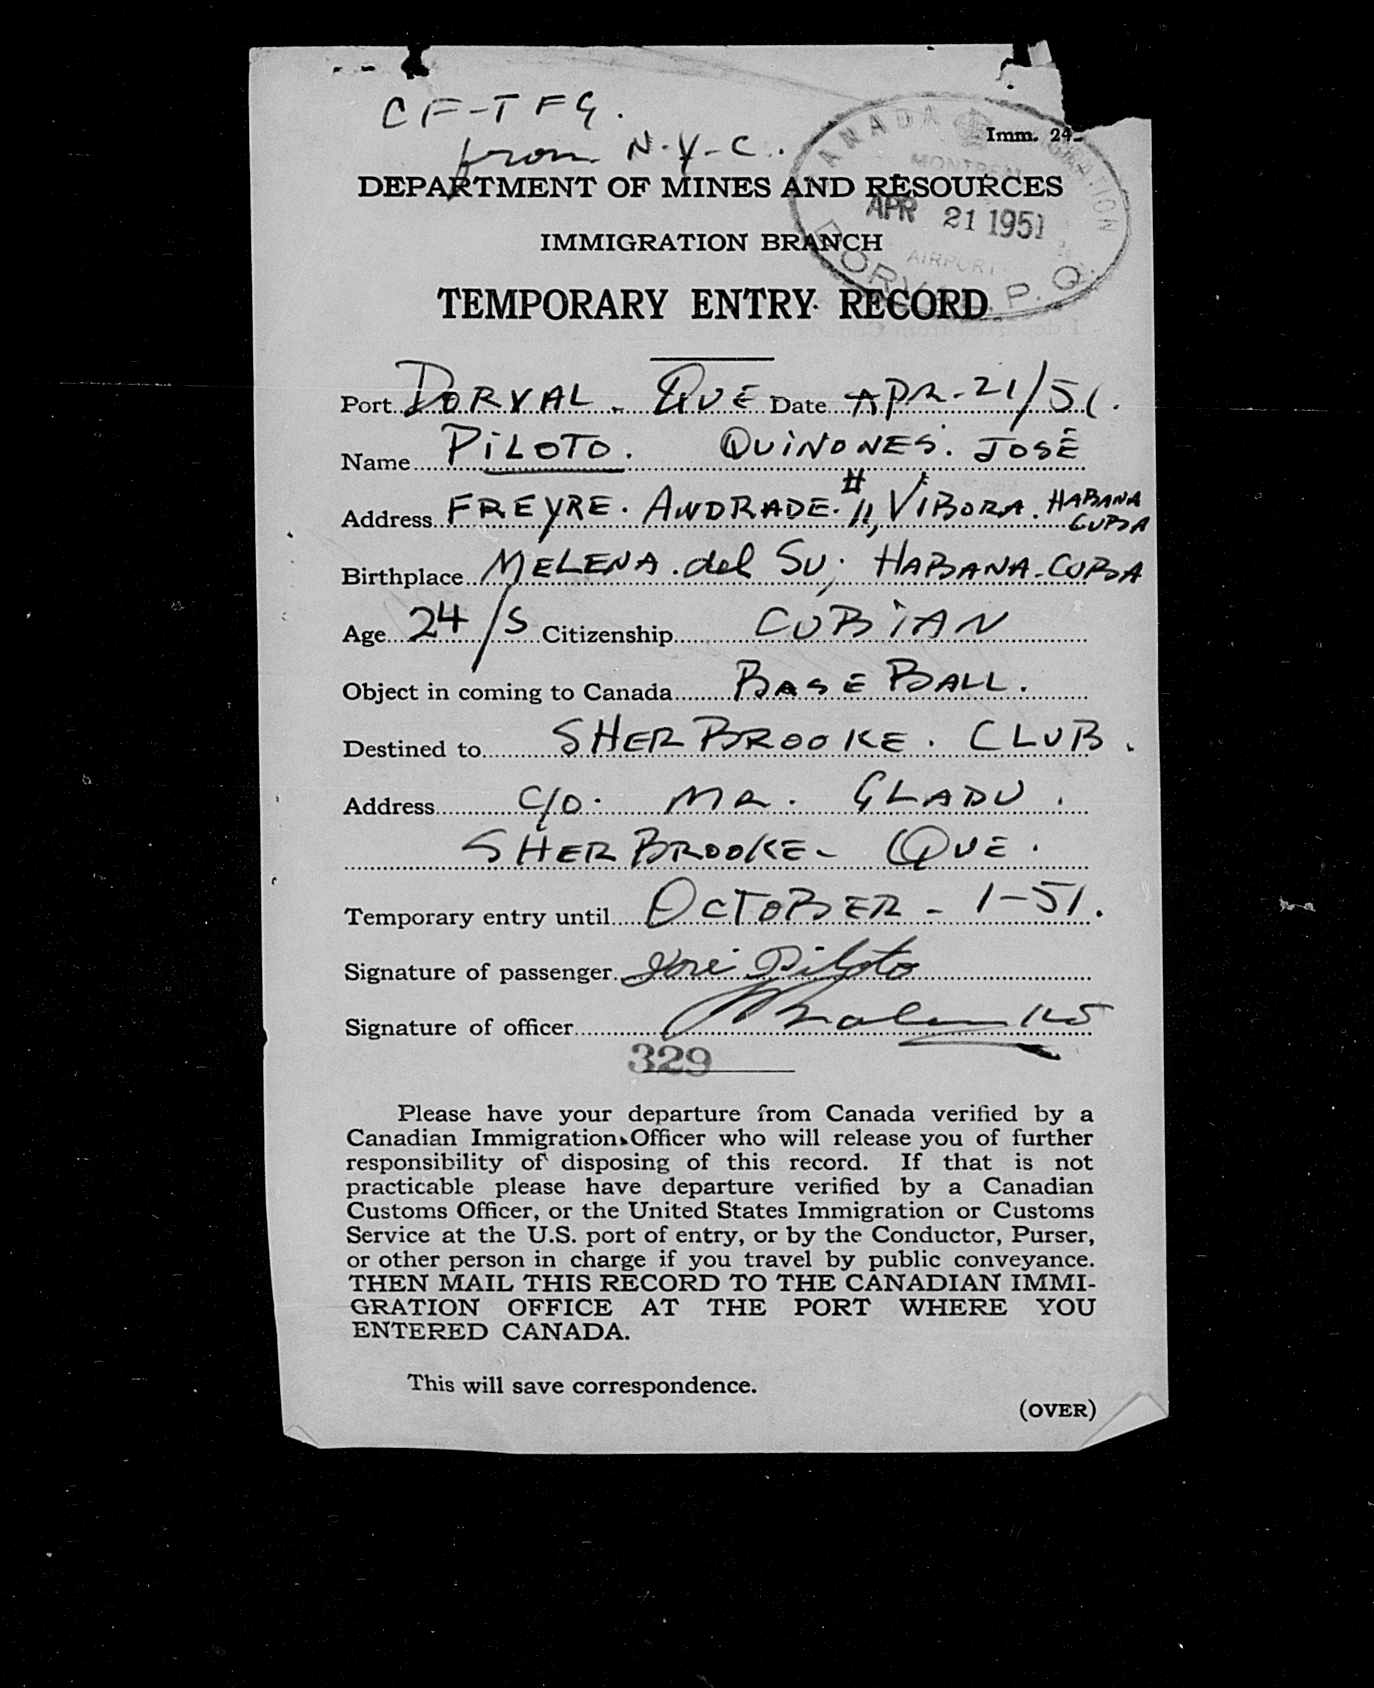 CF-TFG.
from N.Y-C.
Imm. 24
CANADA IMMIGRATION
MONTREAL
APR 21 1951
AIRPORT
DORVAL, P.Q.
DEPARTMENT OF MINES AND RESOURCES
IMMIGRATION BRANCH
TEMPORARY ENTRY RECORD
Port DORVAL - QUE Date APR-21/51.
Name PILOTO. QUINONES. JOSÉ
Address FREYRE. ANDRADE. #11, VIBORA. HABANA CUBA
Birthplace MELENA. del SU, HABANA-CUBA
Age 24/S Citizenship CUBIAN
Object in coming to Canada BASE BALL.
Destined to SHERBROOKE. CLUB.
Address C/O. MR. GLADU.
SHERBROOKE- QUE.
Temporary entry until OCTOBER - 1-51.
Signature of passenger José Piloto
Signature of officer
329
Please have your departure from Canada verified by a
Canadian Immigration Officer who will release you of further
responsibility of disposing of this record. If that is not
practicable please have departure verified by a Canadian
Customs Officer, or the United States Immigration or Customs
Service at the U.S. port of entry, or by the Conductor, Purser,
or other person in charge if you travel by public conveyance.
THEN MAIL THIS RECORD TO THE CANADIAN IMMI-
GRATION OFFICE AT THE PORT WHERE YOU
ENTERED CANADA.
This will save correspondence.
(OVER)